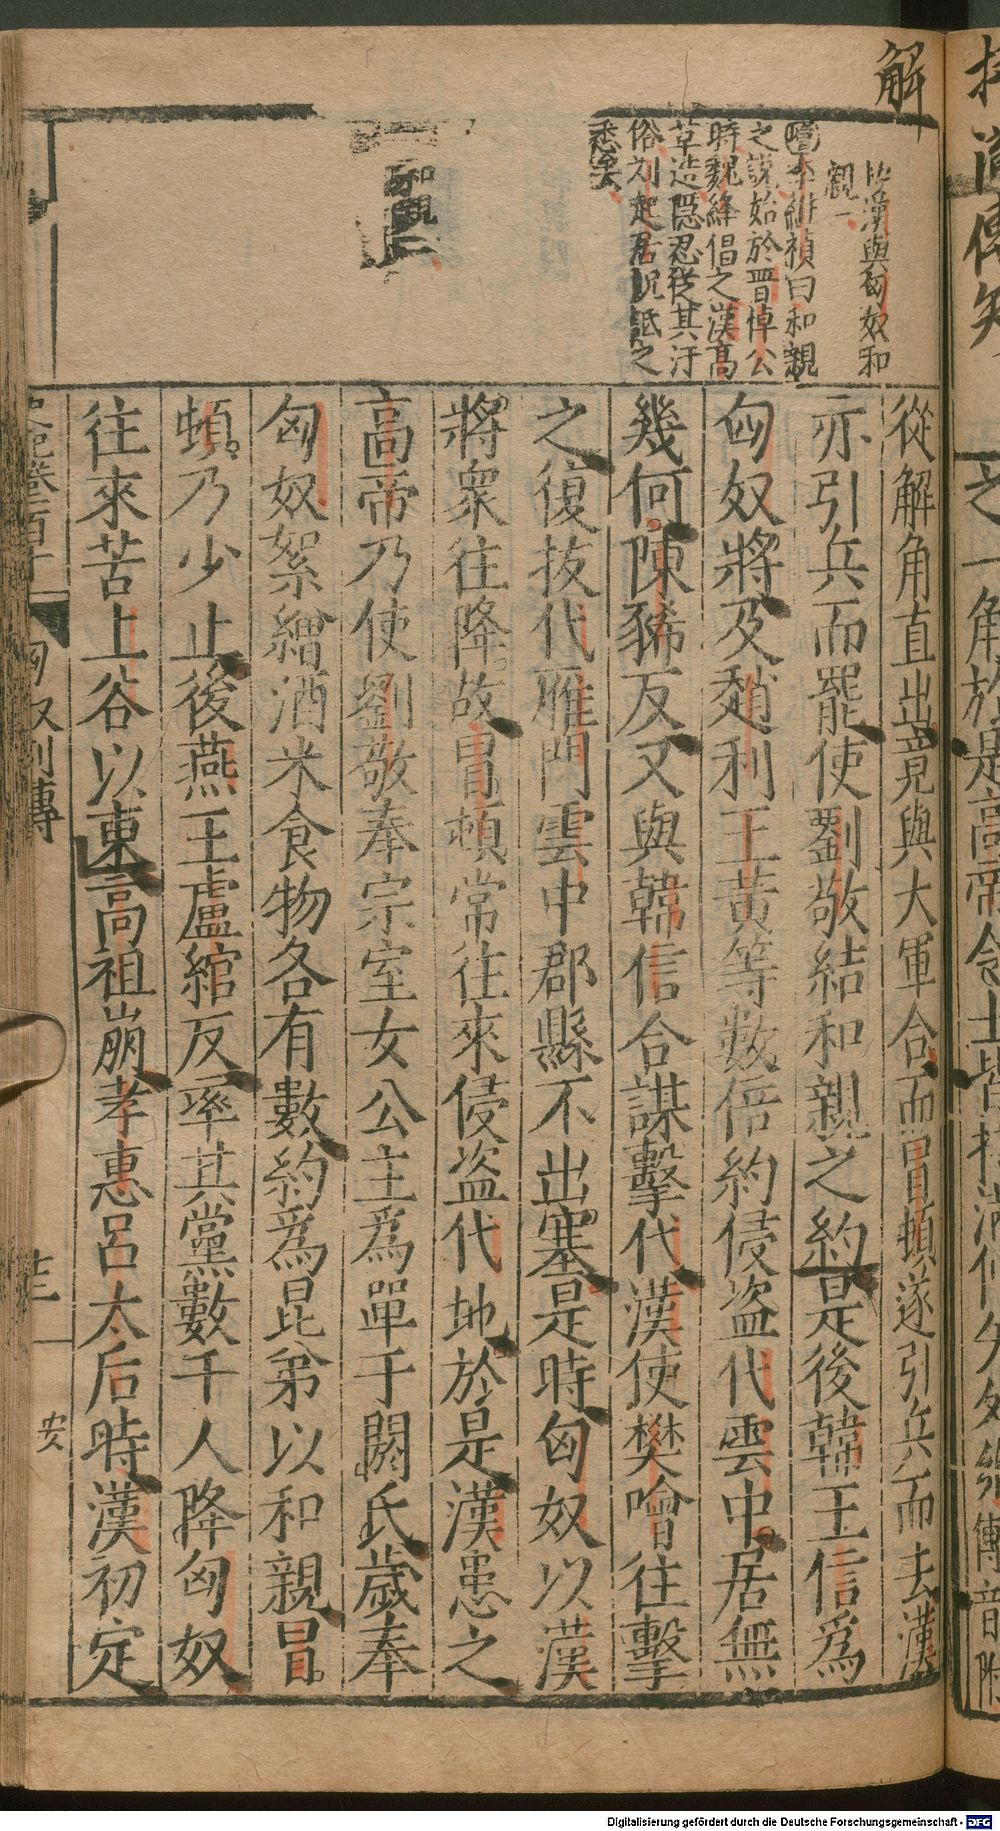 解
此漢與匈奴和
親一
李維禎曰和親
之說始於晉悼公
時魏絳倡之漢高
草造隱忍從其汙
俗刘起居
悉矣
和親二
從解角直出竟與大軍合而冒頓遂引兵而去漢
亦引兵而罷使劉敬結和親之約是後韓王信爲
匈奴將及趙利王黃等數倍約侵盗代雲中居無
幾何陳豨反又與韓信合謀擊代漢使樊噲往擊
之復拔代雁門雲中郡縣不出塞是時匈奴以漢
將衆往降故冒頓常往來侵盗代地於是漢患之
高帝乃使劉敬奉宗室女公主爲單于閼氏歲奉
匈奴絮繒酒米食物各有數約爲昆弟以和親冒
頓乃少止後燕王盧綰反率其黨數千人降匈奴
往來苦上谷以東高祖崩孝惠呂太后時漢初定
匈奴列傳
安
之一角於是高帝令士皆持滿傅矢外鄉
Digitalisierung gefördert durch die Deutsche Forschungsgemeinschaft - DFG